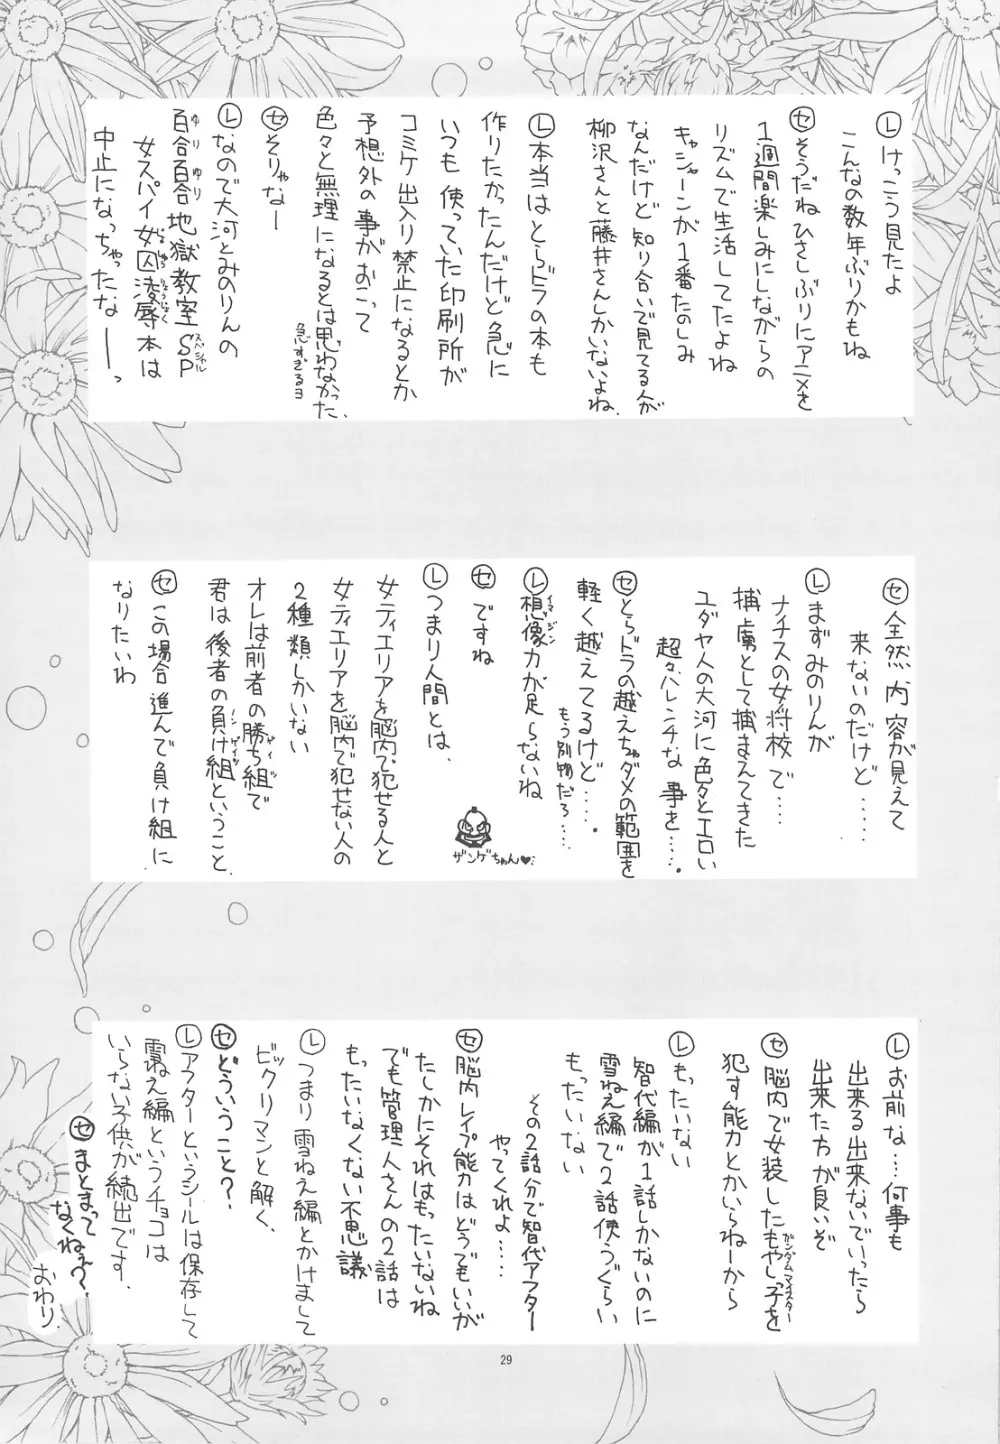 Ⓛけっこう見たよ
こんなの数年ぶりかもね
㋝そうだねひさしぶりにアニメを
1週間楽しみにしながらの
リズムで生活してたよね
キャシャーンが1番たのしみ
なんだけど知り合いで見てる人が
柳沢さんと藤井さんしかいないよね、
Ⓛ本当はとらドラの本も
作りたかったんだけど急に
いつも使っていた印刷所が
コミケ出入り禁止になるとか
予想外の事がおこって
色々と無理になるとは思わなかった、
急すぎるヨ
㋝そりゃなー
Ⓛなので大河とみのりんの
百合百合地獄教室SP
ゆり ゆり
スペシャル
女スパイ女囚凌辱本は
じょしゅうりょうじょく
中止になっちゃったなーっ
㋝全然内容が見えて
来ないのだけど……
Ⓛまずみのりんが
ナチスの女将校で…
捕虜として捕まえてきた
ユダヤ人の大河に色々とエロい
超々ハレンチな事を……
㋝とらドラの越えちゃダメの範囲を
軽く越えてるけど…
もう別物だろ……
Ⓛ想像力が足らないね
イマジン
㋝ですね
Ⓛつまり人間とは、
女ティエリアを脳内で犯せる人と
女ティエリアを脳内で犯せない人の
2種類しかいない
オレは前者の勝ち組で
君は後者の負け組ということ
㋝この場合進んで負け組に
なりたいわ
ザンゲちゃん♥…
Ⓛお前な…何事も
出来る出来ないでいったら
出来た方が良いぞ
㋝脳内で女装したもやしっ子を
ガンダムマイスター
犯す能力とかいらねーから
Ⓛもったいない
智代編が1話しかないのに
雪ねえ編で2話使うぐらい
もったいない
その2話分で智代アフター
やってくれよ……
㋝脳内レイプ能力はどうでもいいが
たしかにそれはもったいないね
でも管理人さんの2話は
もったいなくない不思議
Ⓛつまり雪ねえ編とかけまして
ビックリマンと解く、
㋝どういうこと?
Ⓛアフターというシールは保存して
雪ねえ編というチョコは
いらない子供が続出です、
㋝まとまって
なくねぇ?
おわり
29